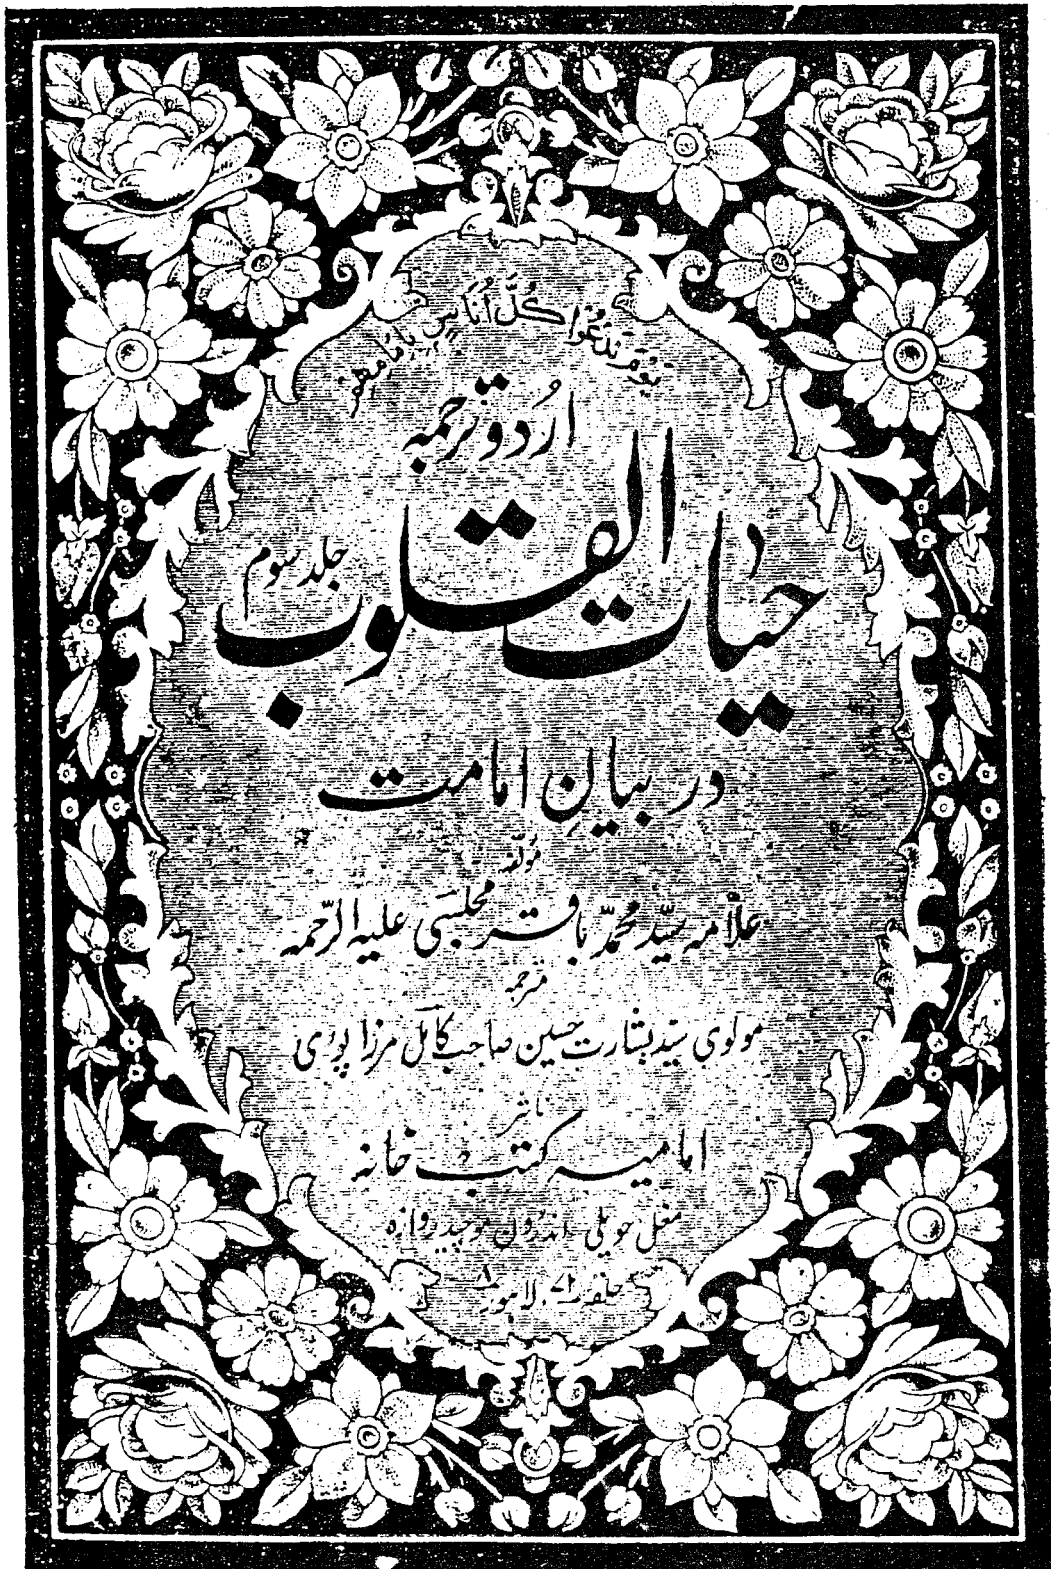 يَوْمَ نَدْعُوا كُلَّ أُنَاسٍ بِإِمَامِهِمْ
اُردو ترجمہ
حیات القلوب جلد سوم
در بیانِ امامت
مؤلفہ
علّامہ سیّد محمّد باقر مجلسی علیہ الرّحمہ
مترجمہ
مولوی سیّد بشارت حسین صاحب کامل مرزا پوری
ناشر
امامیہ کتب خانہ
مغل حویلی اندرون موچیدروازہ
حلقہ ۷۱ لاہور ۸